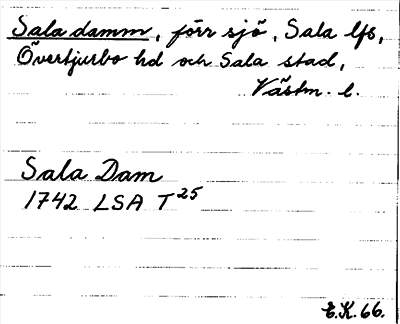 Sala damm, förr sjö, Sala lfs,
Övertjurbo hd och Sala stad,
Västm. l.
Sala Dam
1742 LSA T25
E.K. 66.